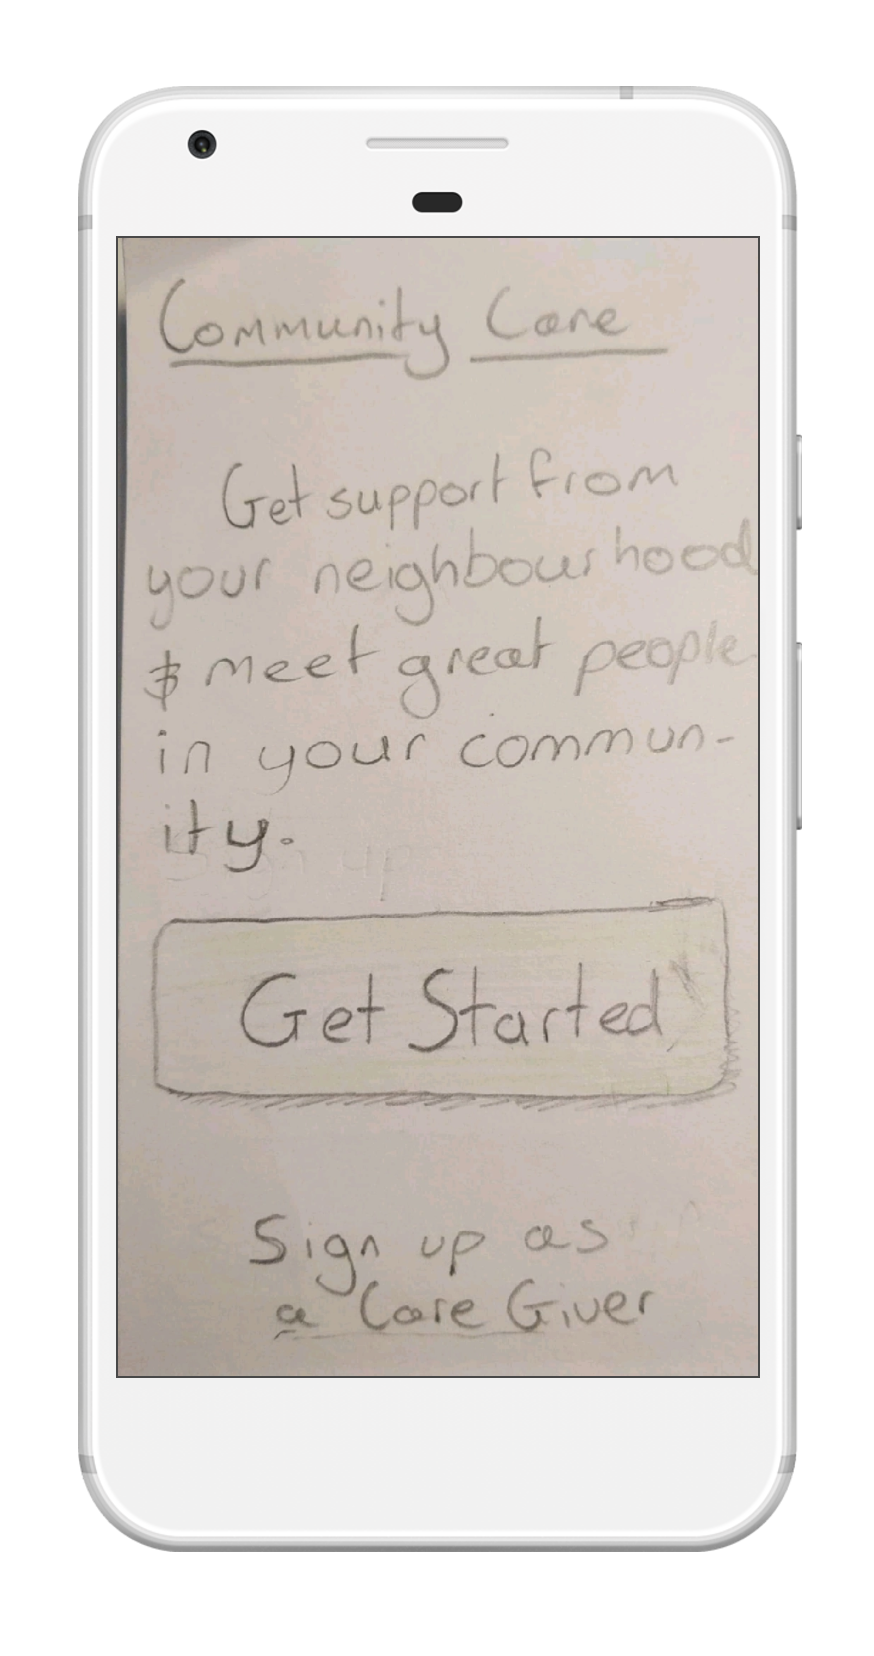 Community Care
Get support from
your neighbourhood
& meet great people
in your commun-
ity.
Sign up
Get Started
Sign up as
a Care Giver